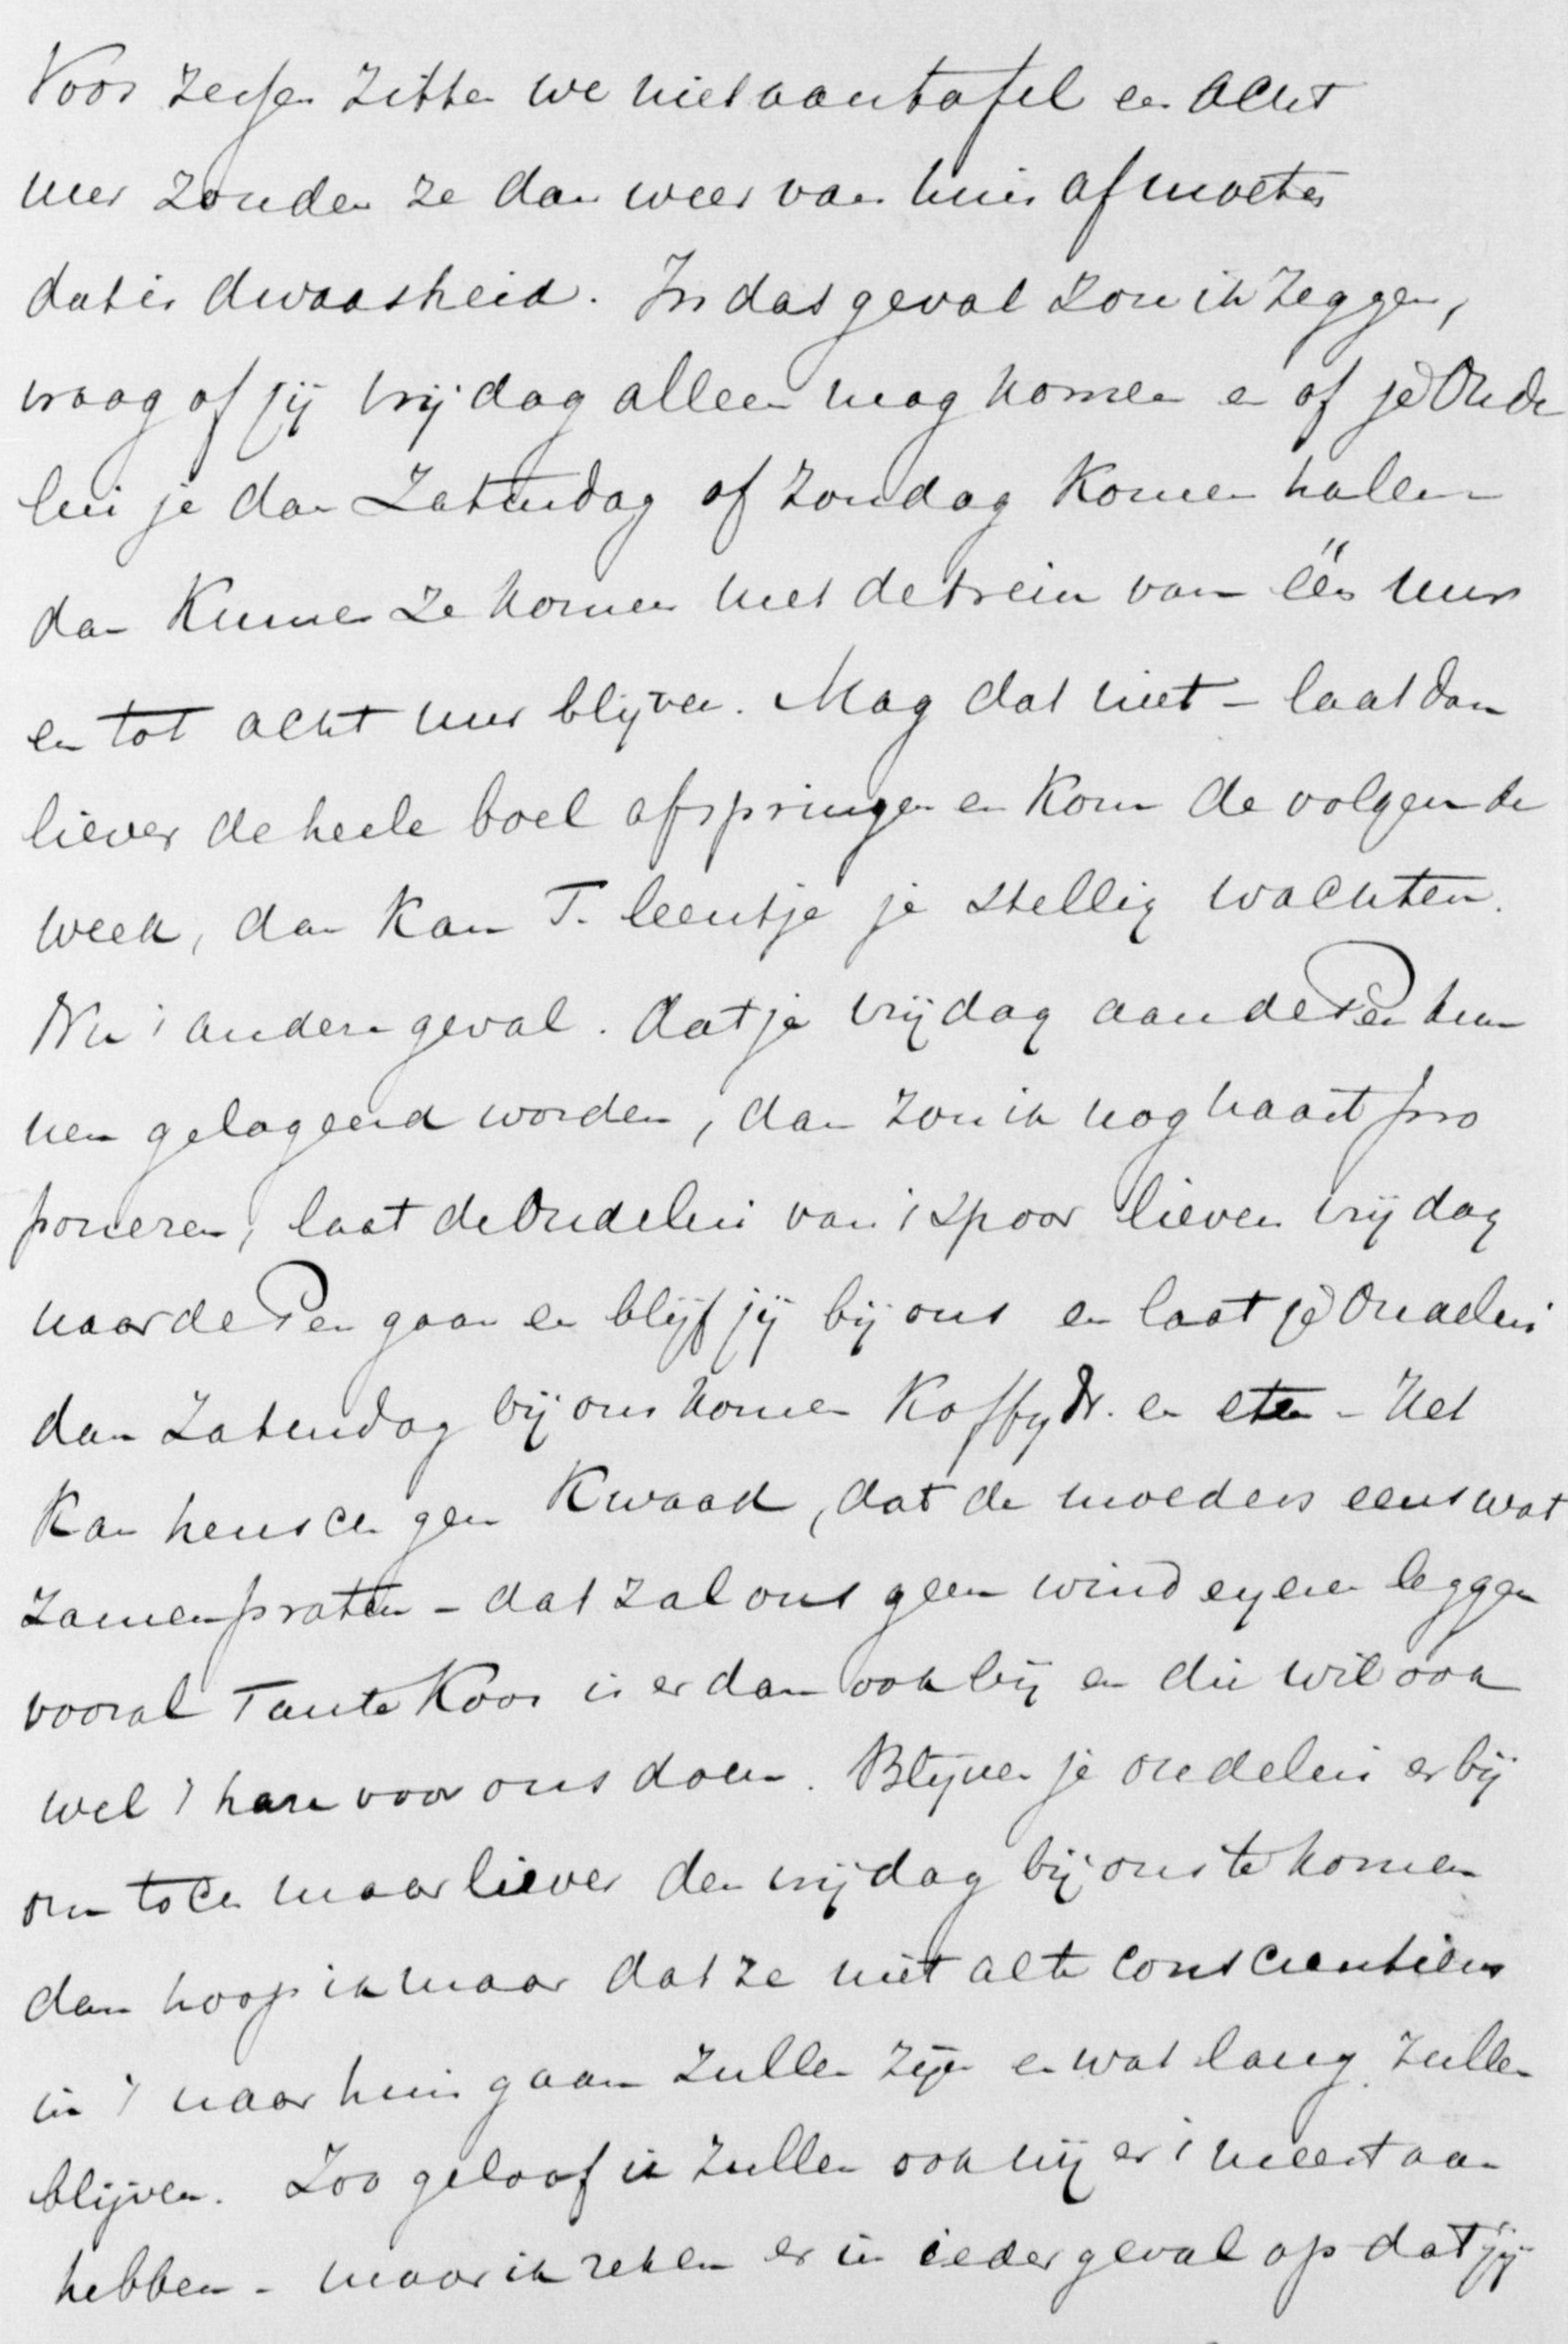 Voor zessen zitten we niet aan tafel en acht
uur zouden ze dan weer van huis af moeten
dat is dwaasheid. In dat geval zou ik zeggen,
vraag of jij vrijdag alleen mag komen en of je Oude
lui je dan Zaturdag of Zondag komen halen
dan kunnen ze komen met de trein van één uur
en tot acht uur blijven. Mag dat niet – laat dan
liever de heele boel afspringen en kom de volgende
week, dan kan T. Leentje je stellig wachten.
Nu 't andere geval. dat je vrijdag aan de Pen kun
nen gelogeerd worden, dan zou ik nog haast pro
poneeren, laat de Oudelui van 't spoor liever vrijdag
naar de Pen gaan en blijf jij bij ons en laat je Oudelui
dan Zaturdag bij ons komen Koffy dr. en eten – Het
kan heusch geen kwaad, dat de moeders eens wat
zamen praten – dat zal ons geen wind eyeren leggen
vooral Tante Koos is er dan ook bij en die wil ook
wel 't hare voor ons doen. Blijven je oudelui er bij
om toch maar liever den vrijdag bij ons te komen
dan hoop ik maar dat ze niet al te consciëntieus
in 't naar huis gaan zullen zijn en wat lang zullen
blijven. Zoo geloof ik zullen ook wij er 't meest aan
hebben – maar ik reken er in ieder geval op dat jij